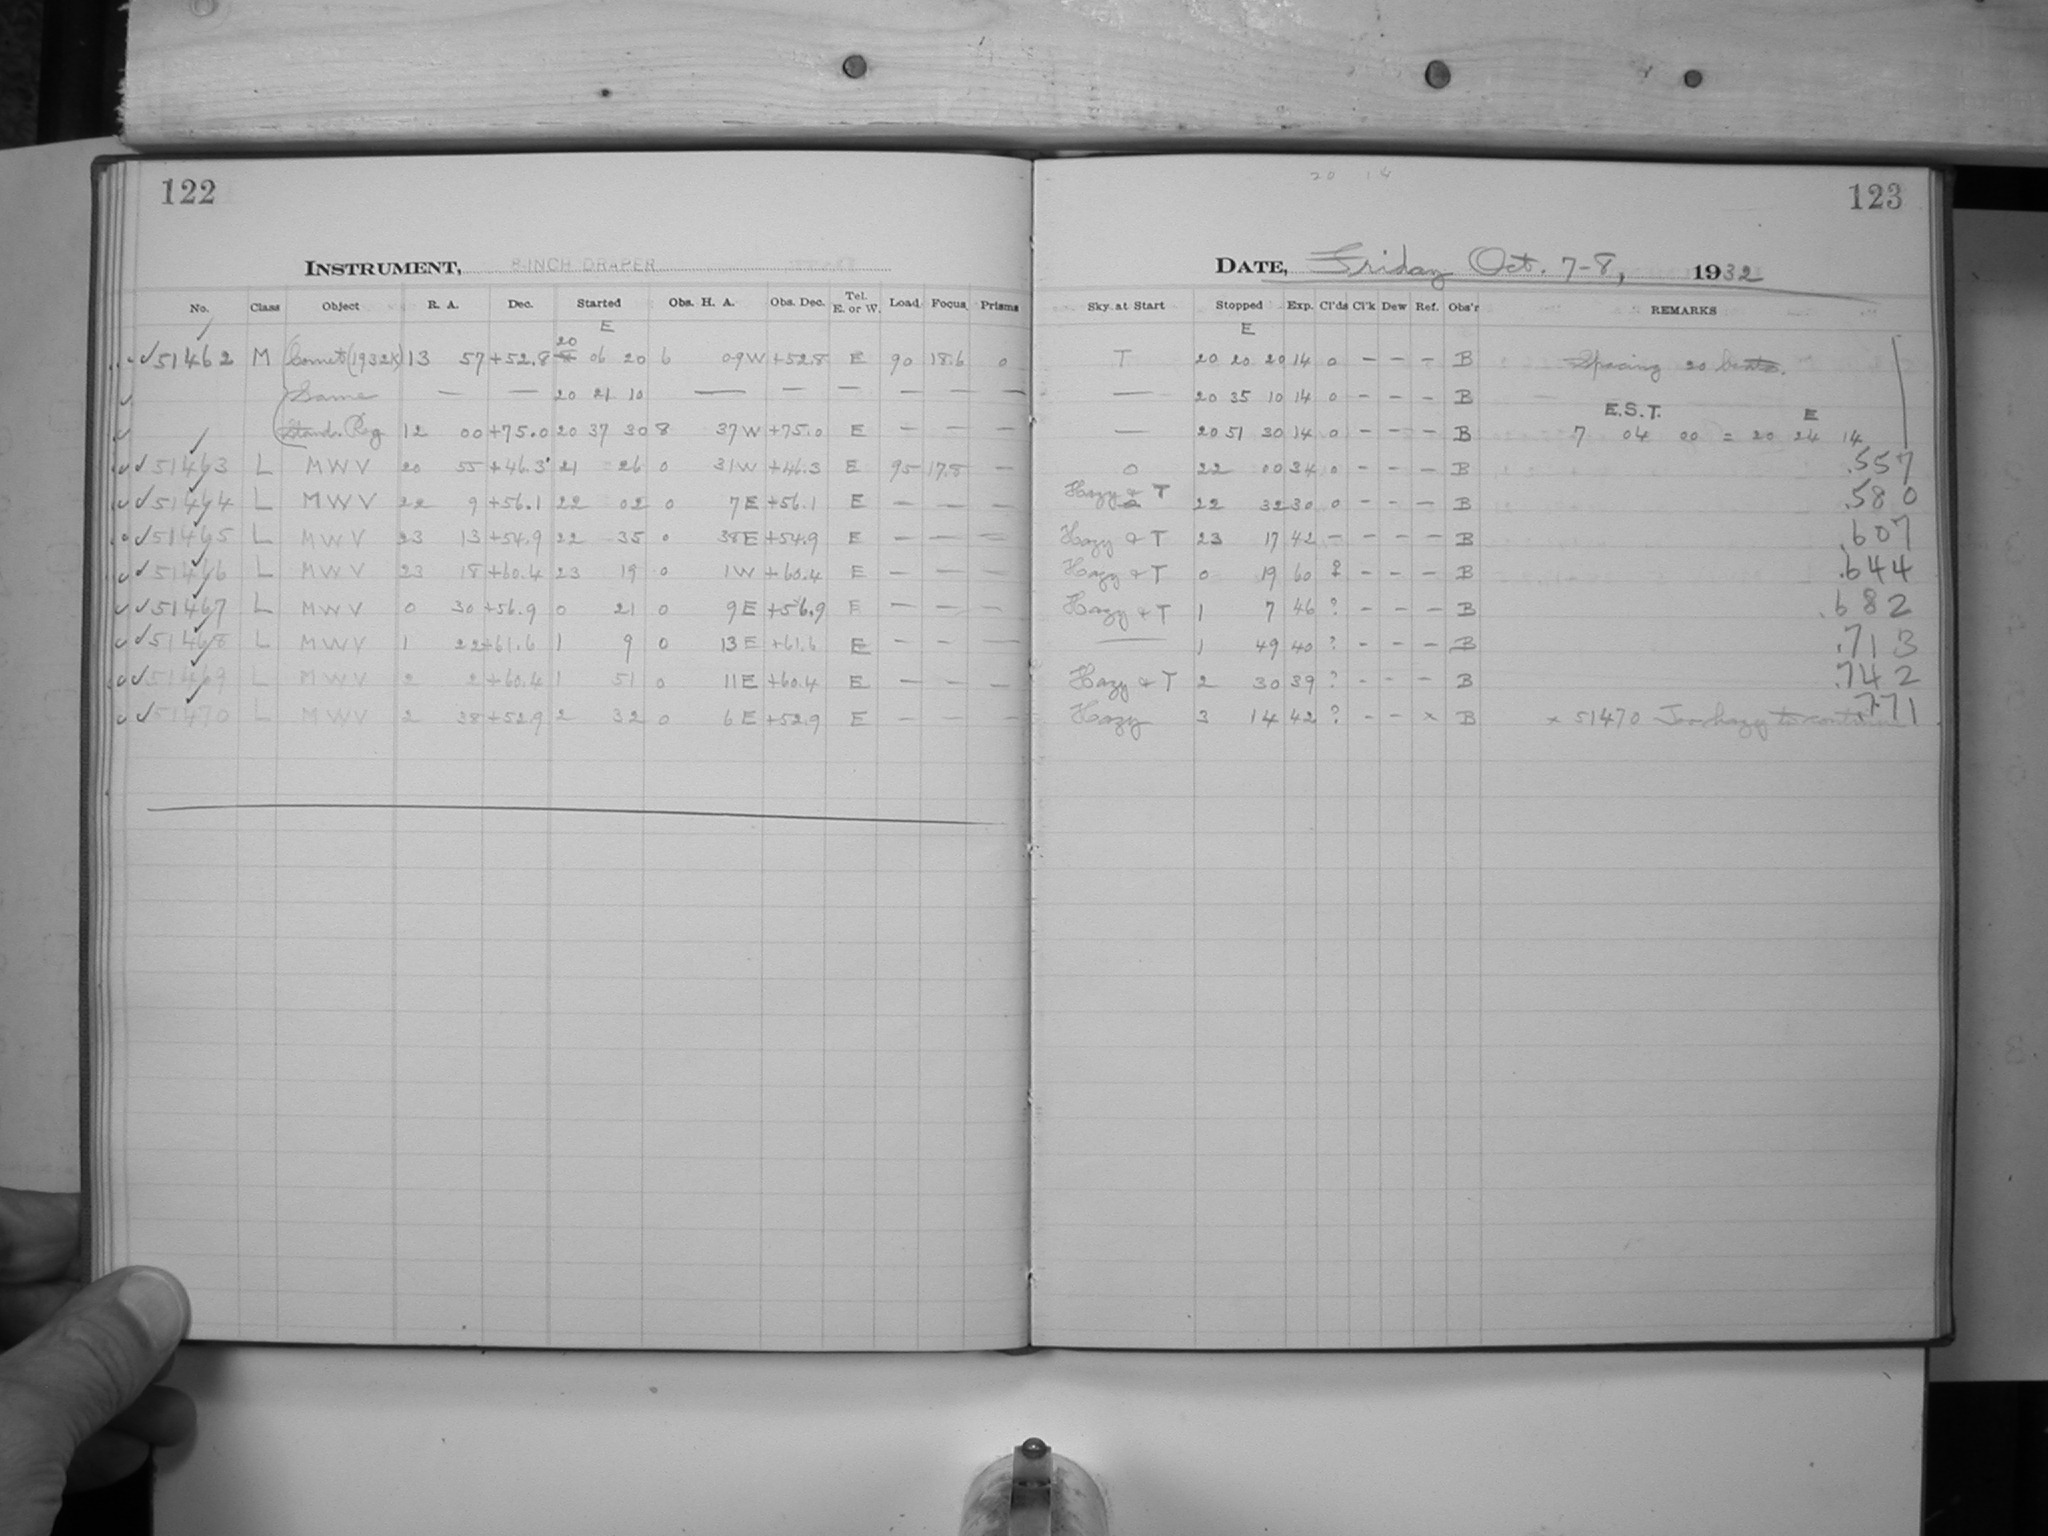 122
INSTRUMENT, 8-INCH DRAPER
No. Class Object R. A. Dec. Started Obs. H. A. Obs. Dec. Tel. E. or W. Load Focus Prisms
E
20
✓51462 M Comet (1932K) 13 57 +52.8 06 20 6 09W +52.8 E 90 18.6 0
Same — — 20 21 10 — — — — — —
Stand. Reg 12 00 +75.0 20 37 30 8 37W +75.0 E — — —
✓51463 L MWV 20 55 +46.3 21 26 0 31W +46.3 E 95 17.8 —
✓51464 L MWV 22 9 +56.1 22 02 0 7E +56.1 E — — —
✓51465 L MWV 23 13 +54.9 22 35 0 38E +54.9 E — — —
✓51466 L MWV 23 18 +60.4 23 19 0 1W +60.4 E — — —
✓51467 L MWV 0 30 +56.9 0 21 0 9E +56.9 E — — —
✓51468 L MWV 1 22 +61.6 1 9 0 13E +61.6 E — — —
✓51469 L MWV 2 2 +60.4 1 51 0 11E +60.4 E — — —
✓51470 L MWV 2 38 +52.9 2 32 0 6E +52.9 E — — —
20 14
123
DATE, Friday Oct. 7-8, 1932
Sky at Start Stopped Exp. Cl'ds Cl'k Dew Ref. Obs'r REMARKS
E
T 20 20 20 14 0 - - - B Spacing 20 beats.
— 20 35 10 14 0 - - - B
E.S.T. E
— 20 51 30 14 0 - - - B 7 04 00 = 20 24 14
0 22 00 34 0 - - - B .557
Hazy & T 22 32 30 0 - - - B .580
Hazy & T 23 17 42 - - - - B .607
Hazy & T 0 19 60 ? - - - B .644
Hazy & T 1 7 46 ? - - - B .682
— 1 49 40 ? - - - B .713
Hazy & T 2 30 39 ? - - - B .742
Hazy 3 14 42 ? - - x B x 51470 Too hazy to continue .771